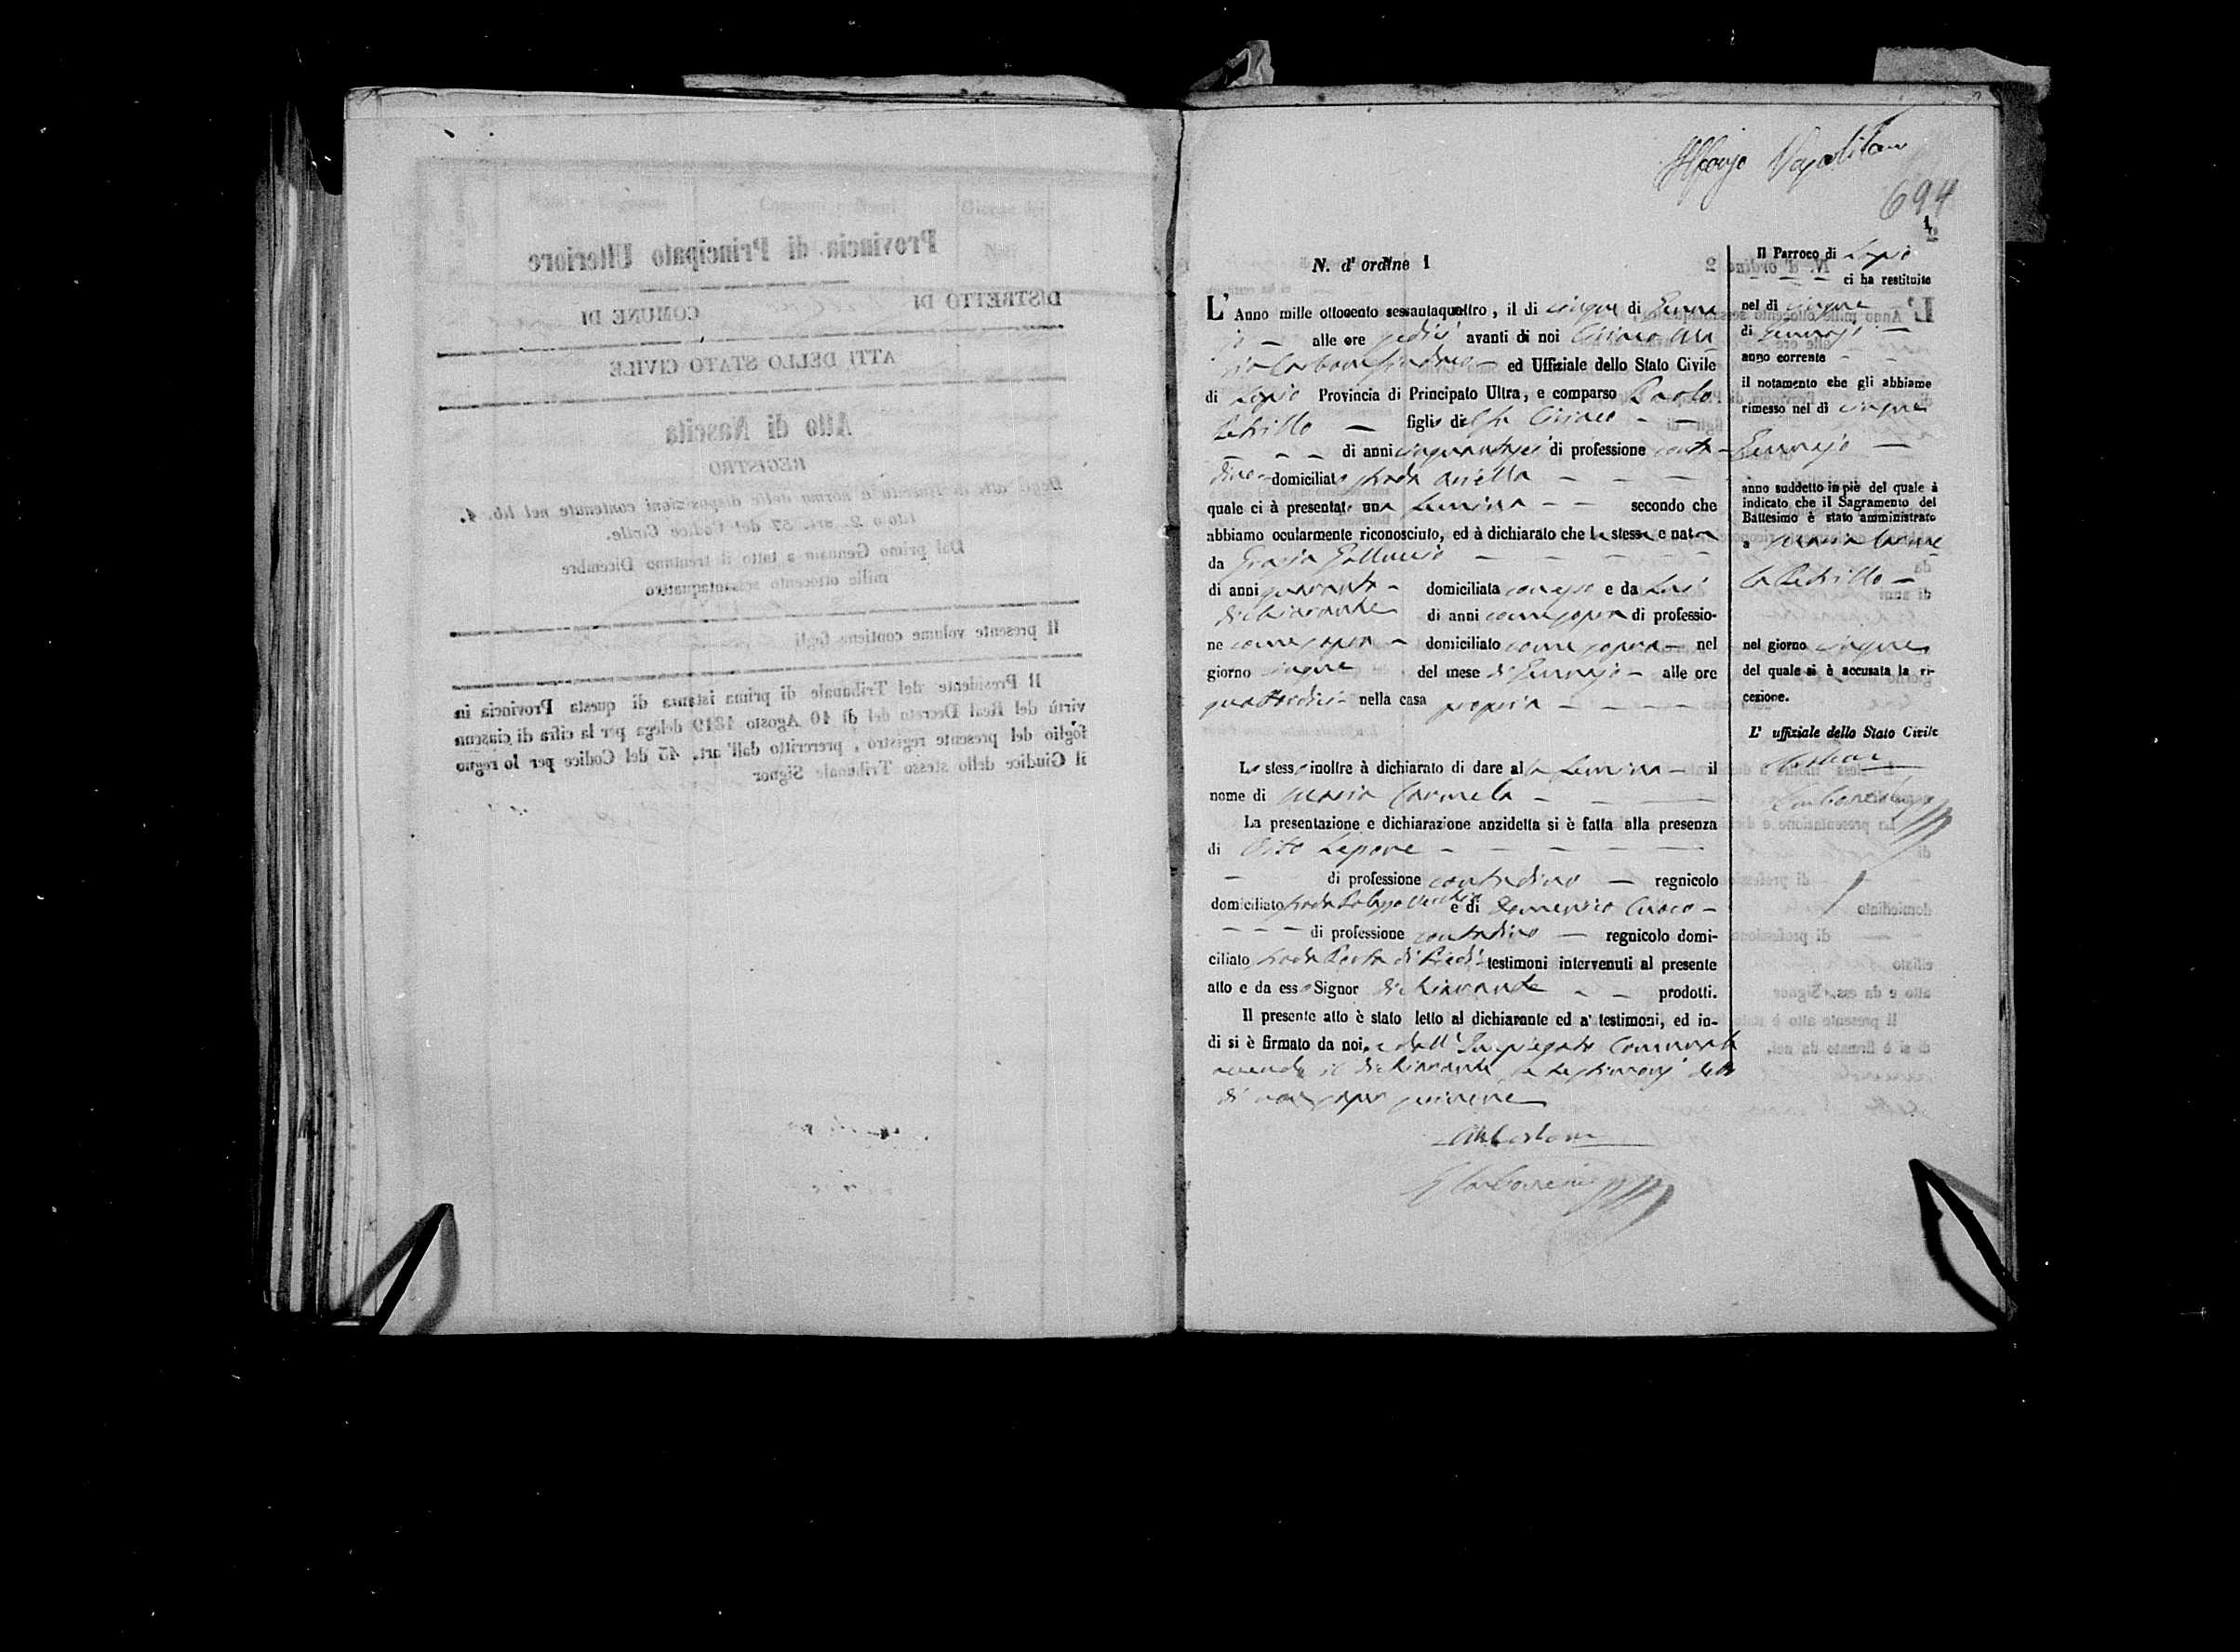 Provincia di Principato Ulteriore
DISTRETTO DI COMUNE DI
ATTI DELLO STATO CIVILE
Atto di Nascita
REGISTRO
Degli atti di Nascita a norma delle disposizioni contenute nel lib. 1.
tito o 2. art. 57 del Codice Civile.
Dal primo Gennaio a tutto il trentuno Dicembre
mille ottocento sessantaquattro
Il presente volume contiene fogli
Il Presidente del Tribunale di prima istanza di questa Provincia in
virtù del Real Decreto del dì 10 Agosto 1819 delega per la cifra di ciascun
foglio del presente registro, prescritto dall'art. 43 del Codice per lo regno
il Giudice dello stesso Tribunale Signor
Napolitano
694
1
N. d' ordine 1
L' Anno mille ottocento sessantaquattro, il di cinque di Genna
jo — alle ore sedici avanti di noi Ciriaco
Carbone Sindaco — ed Uffiziale dello Stato Civile
di Lapio Provincia di Principato Ultra, e comparso Paolo
Petrillo — figlio di Ciriaco — —
di anni cinquantasei di professione conta-
dino domiciliato strada — — —
quale ci à presentato una femina — — secondo che
abbiamo ocularmente riconosciuto, ed à dichiarato che la stessa e nata
da Grazia Galluccio — — — —
di anni quaranta — domiciliata e da Lui
dichiarante di anni come sopra di professio-
ne come sopra — domiciliato come sopra — nel
giorno cinque del mese di Gennajo — alle ore
quattordici — nella casa propria — — — —
Lo stesso inoltre à dichiarato di dare alla femina — il
nome di Maria Carmela — — —
La presentazione e dichiarazione anzidetta si è fatta alla presenza
di Vito Lepore — — — — —
— di professione contadino — regnicolo
domiciliato strada Palazzo Vecchio e di Domenico Cuoco —
— — — di professione contadino — regnicolo domi-
ciliato strada Porta di Piedi testimoni intervenuti al presente
atto e da esso Signor dichiarante — — prodotti.
Il presente atto è stato letto al dichiarante ed a' testimoni, ed in-
di si è firmato da noi, e dall' Impiegato Comunale
avendo il dichiarante, e testimonj detto
di non saper scrivere
Il Parroco di Lapio
— — — — ci ha restituito
nel di cinque —
di Gennajo —
anno corrente — —
il notamento che gli abbiamo
rimesso nel di cinque
Gennajo —
anno suddetto in piè del quale à
indicato che il Sagramento del
Battesimo è stato amministrato
a Maria Carme
la Petrillo —
nel giorno cinque
del quale si è accusata la ri-
cezione.
L' uffiziale dello Stato Civile